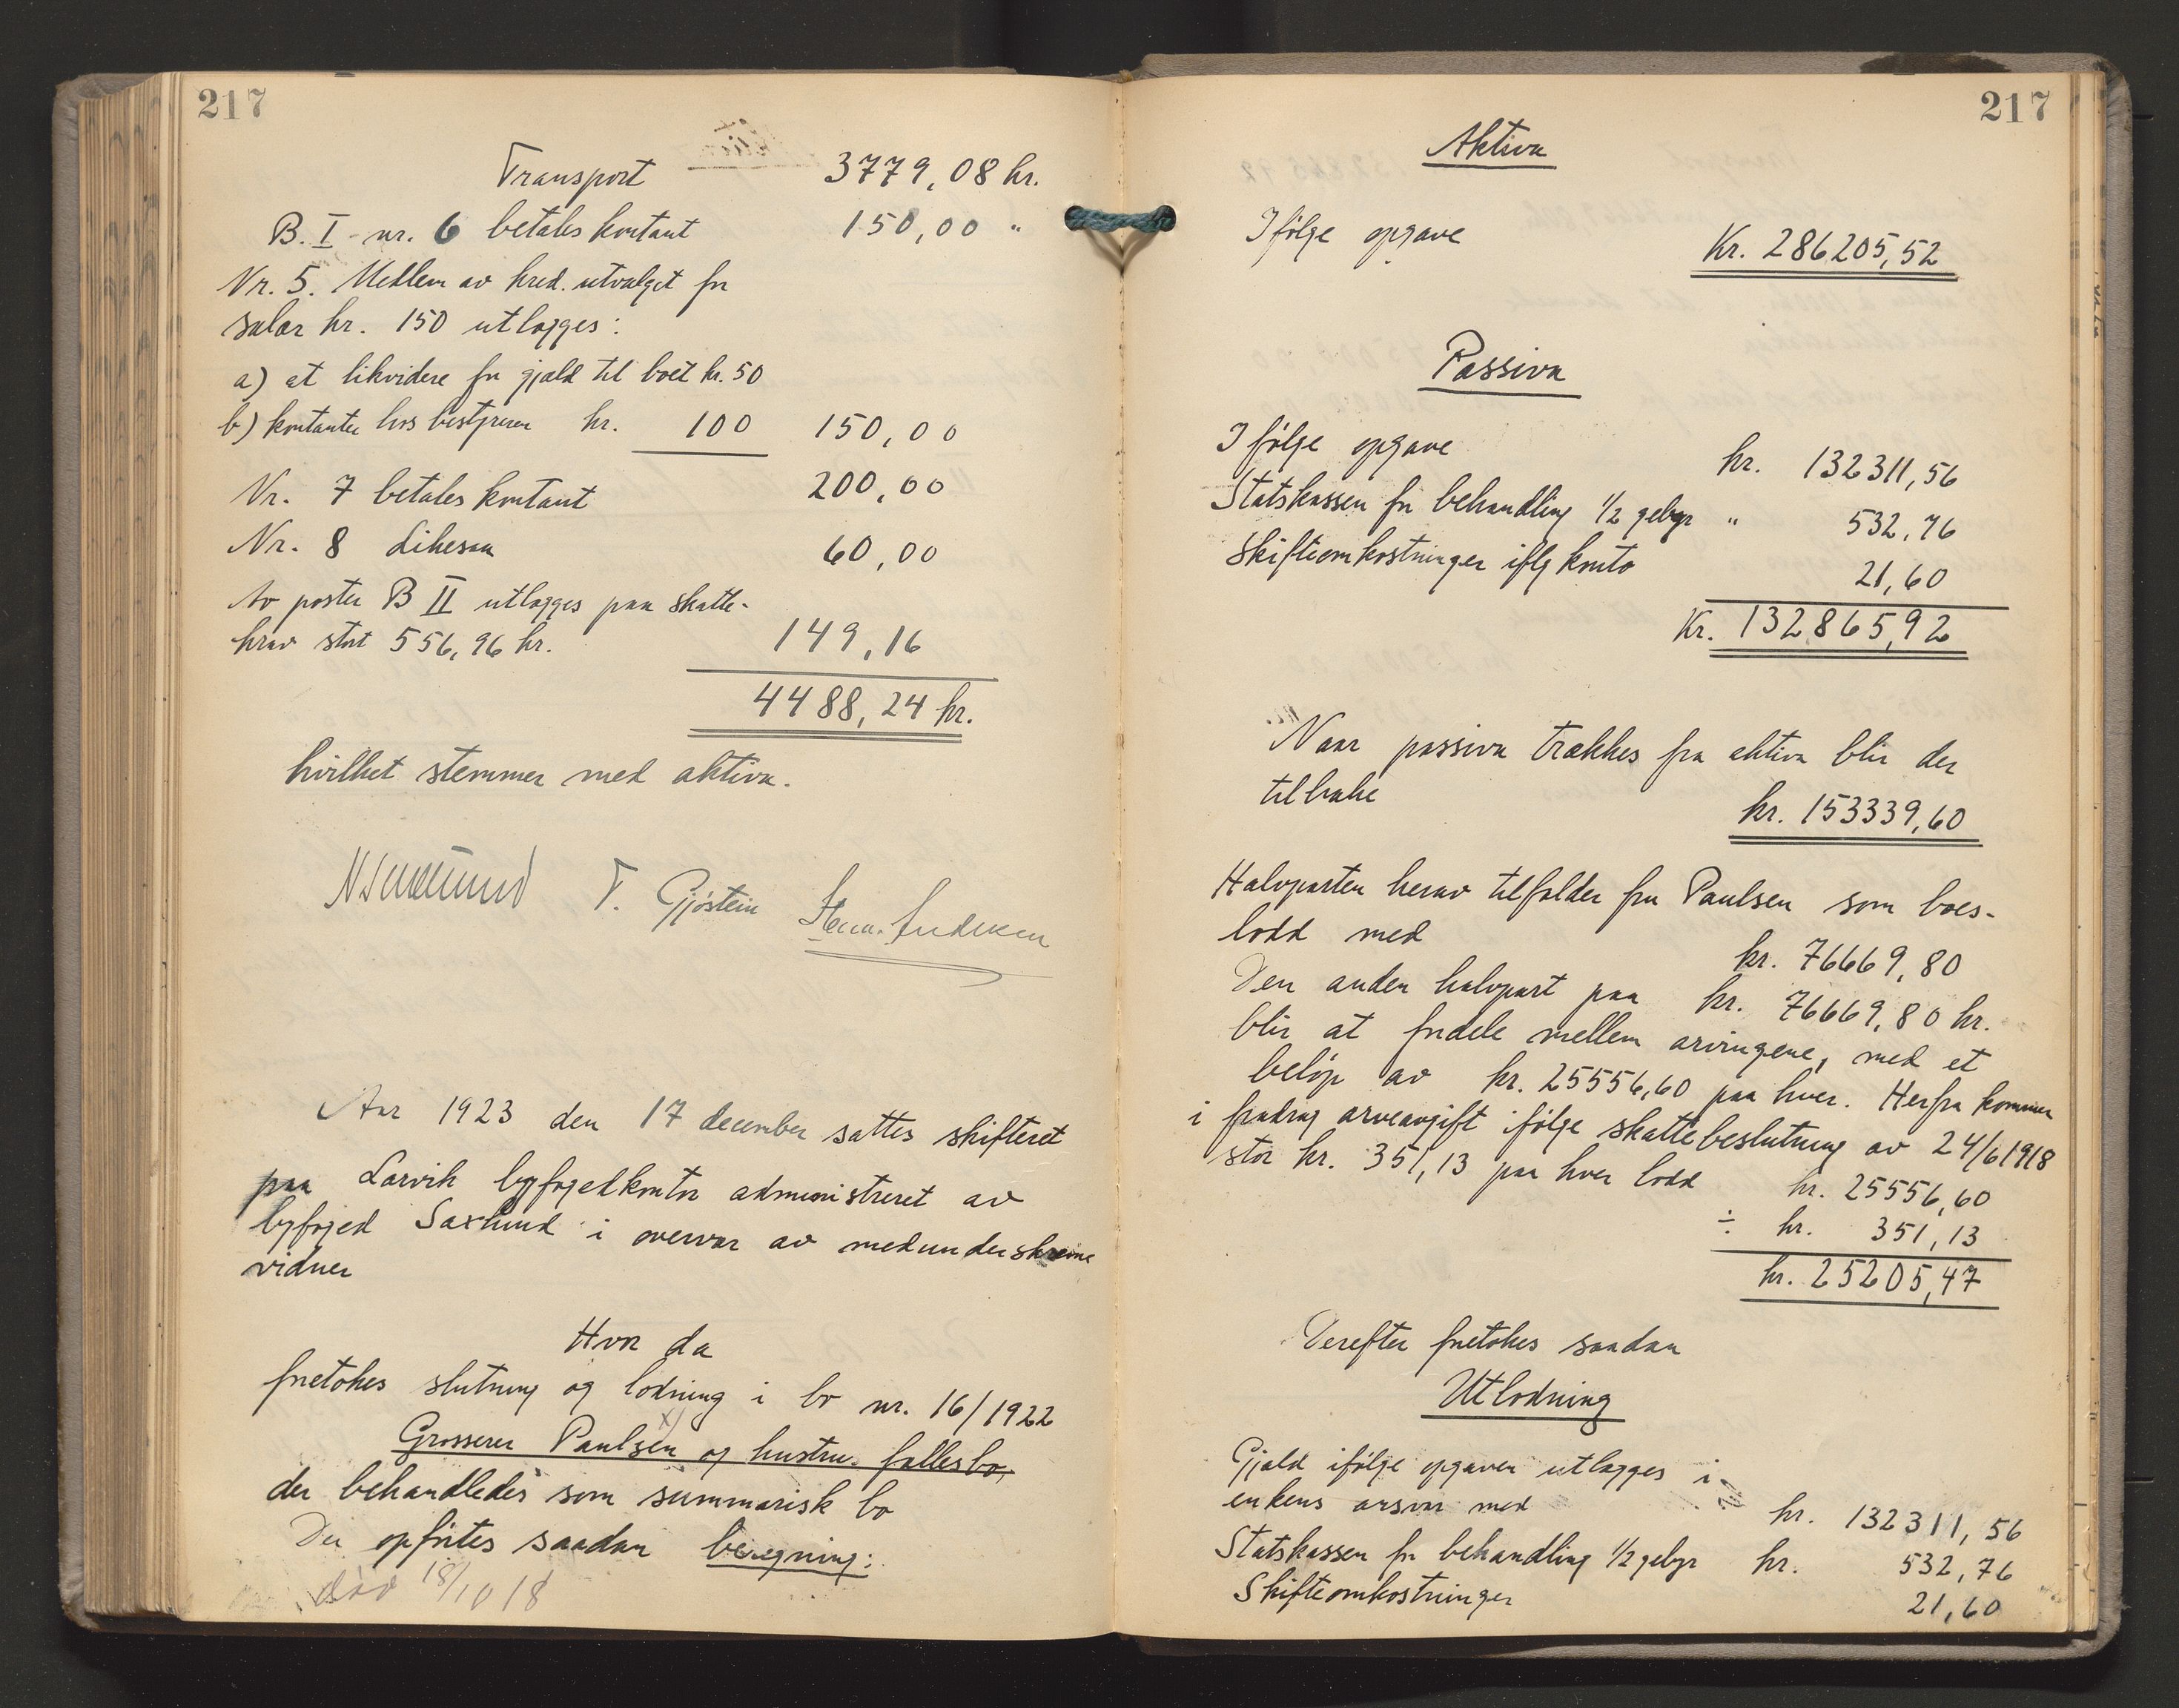 217
Transport 3779,08 kr.
B. I - nr. 6 betales kontant 150,00 "
Nr. 5. Medlem av kred. utvalget for
salær kr. 150 utlægges:
a) at likvidere for gjæld til boet kr. 50
b) kontanter hos bestyreren kr. 100 150,00
Nr. 7 betales kontant 200,00
Nr. 8 Likesaa 60,00
Av poster B II utlægges paa skatte-
krav stort 556,96 kr. 149,16
4488,24 kr.
hvilket stemmer med aktiva.
T. Gjøstein
Aar 1923 den 17 december sattes skifteret
paa Larvik byfogedkontor administreret av
byfoged Saxlund i overvær av medunderskrevne
vidner
Hvor da
foretokes slutning og lodning i bo nr. 16/1922
Grosserer Paulsen x) og hustru fællesbo,
der behandledes som summarisk bo
Der opførtes saadan beregning:
død 18/10 18
217
Aktiva
Ifølge opgave Kr. 286205,52
Passiva
Ifølge opgave kr. 132311,56
Statskassen for behandling 1/2 gebyr " 532,76
Skifteomkostninger iflg konto 21,60
Kr. 132865,92
Naar passiva trækkes fra aktiva blir der
tilbake kr. 153339,60
Halvparten herav tilfalder fru Paulsen som boes-
lodd med kr. 76669,80
Den anden halvpart paa kr. 76669,80 kr.
blir at fordele mellem arvingene, med et
beløp av kr. 25556,60 paa hver. Herfra kommer
i fradrag arveavgift ifølge skattebeslutning av 24/6 1918
stor kr. 351,13 paa hver lodd kr. 25556,60
÷ kr. 351,13
kr. 25205,47
Derefter foretokes saadan
Utlodning
Gjæld ifølge opgaver utlægges i
enkens ansvar med kr. 132311,56
Statskassen for behandling 1/2 gebyr kr. 532,76
Skifteomkostninger 21,60